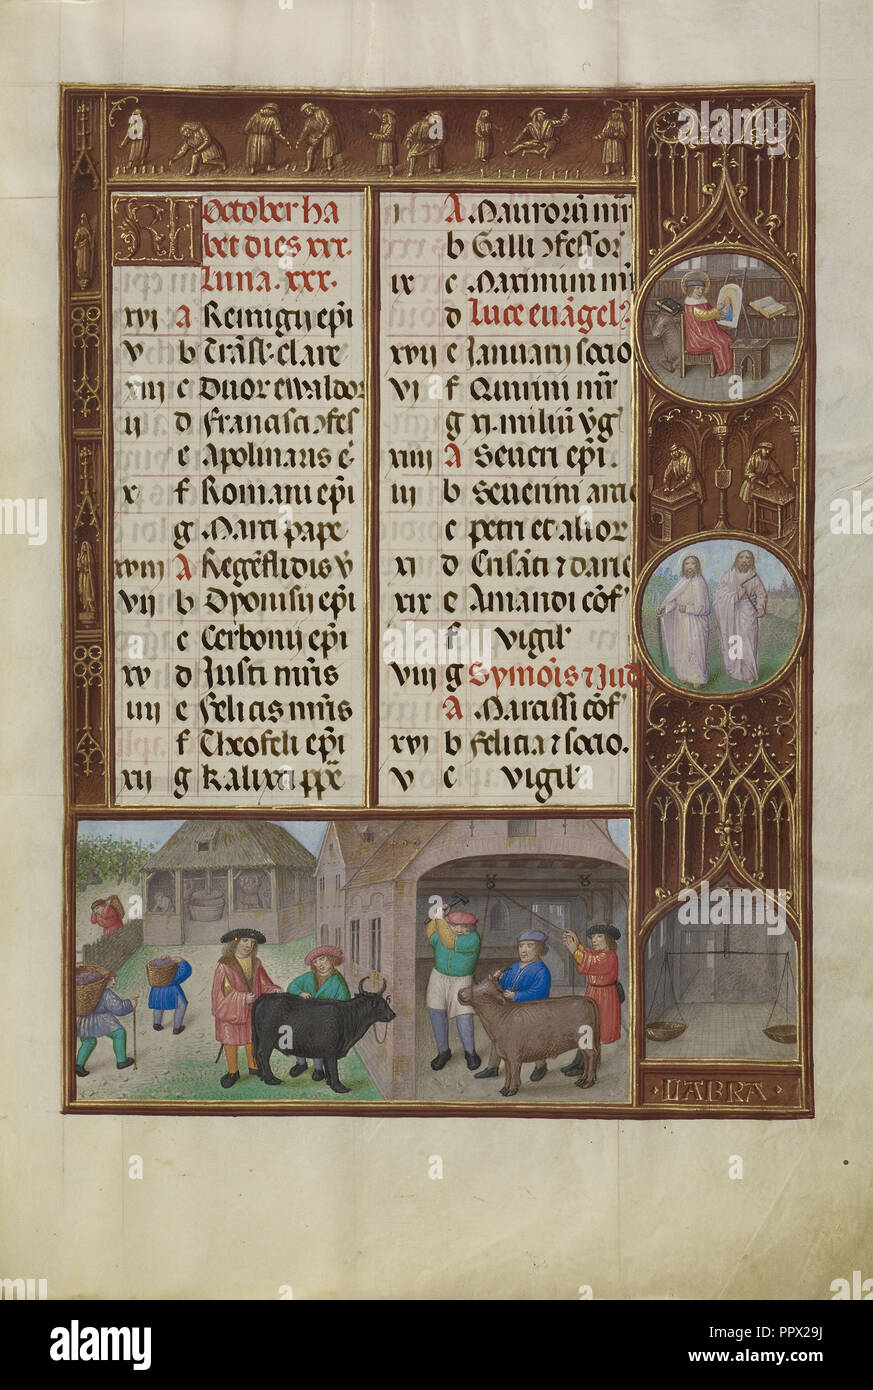 KL October ha
bet dies xxx.
Luna. xxx.
xvi A Remigii epi
v b Trāsl. clare
xiii c Duor ewaldor
ii d Francisci ɔfes
e Apolinaris ē
x f Romani epi
g Marci pape
xviii A Regēflidis v̄
vii b Dyonisii epi
c Cerbonii epi
xv d Justi mr̄is
iiii e Felicis mr̄is
f Theofeli epi
xii g Kalixti pp̄e
i A Maurorū mr̄
b Galli ɔfessor
ix c Maximum mr̄
d Luce evāgel
xvii e Januarii socio
vi f Quirini mr̄
g xi. miliū v̄g
xiiii A Severi epi.
iii b Severini arc
c petri et alior
xi d Crisāti ⁊ darie
xix e Amandi cōf
f vigil
viii g Symōis ⁊ Jud
A Marcissi cōf
xvi b Felicia ⁊ socio.
v c vigil
LIABRA
alamy
Image ID: PPX29J
www.alamy.com